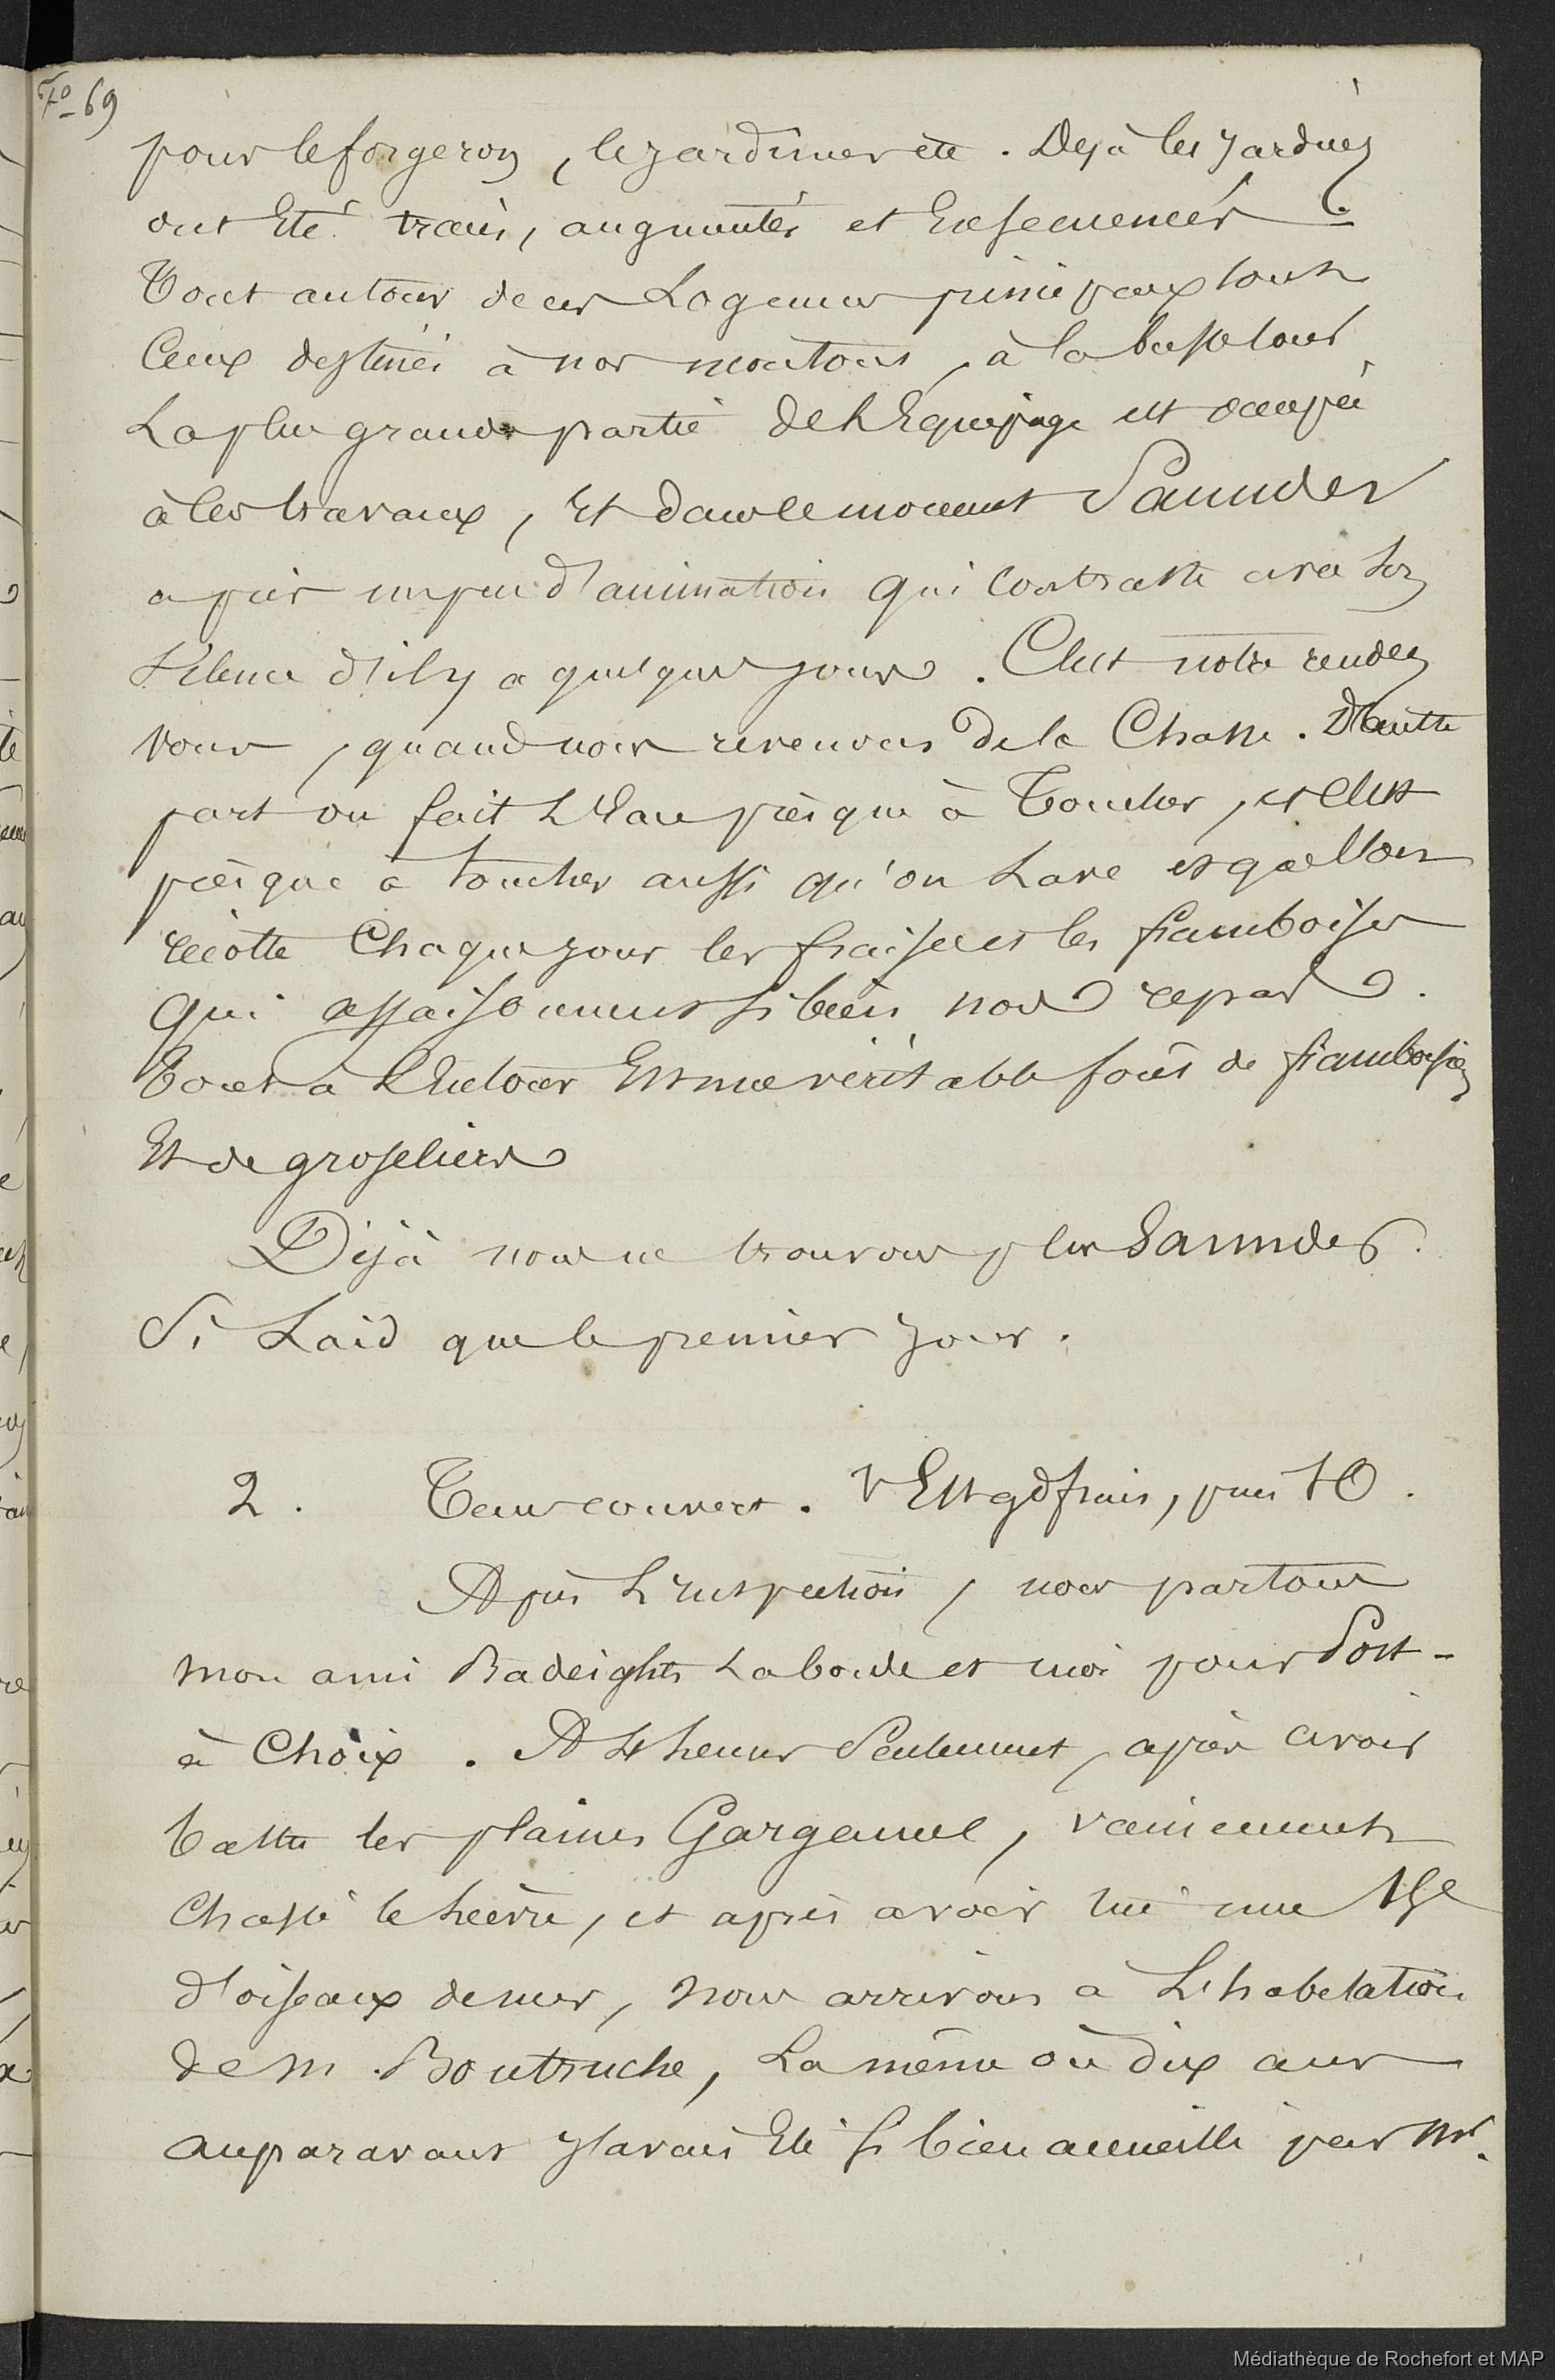 Fo 69
pour le forgeron, le jardinier etc. Dejà les jardins
ont Eté tracés, augmentés et Ensemencés
Tout autour de ces Logemens principaux sont
Ceux destinés à nos moutons, à la basse cour.
La plus grande partie de L'Equipage est occupée
à ces travaux, Et dans ce moment Saunders
a pris un peu d'animation qui contraste avec son
silence d'il y a quelques jours. C'est notre rendez
vous, quand nous revenons de la Chasse. D'autre
part on fait L'Eau presque à Toucher, et C'est
presque à toucher aussi qu'on Lave et que l'on
récolte Chaque jour les fraises et les framboises
qui assaisonnent si bien nos repas.
Tout à L'Entour Est une véritable forêt de framboisiers
Et de groseliers
Déjà nous ne trouvons plus Saunders
Si Laid que le premier jour.
2. Tems couvert. V Est gd frais, puis SO.
Après L'inspection, nous partons
mon ami Badeights Laborde et moi pour Port-
à Choix. A 4 heures Seulement, après avoir
battu les plaines Gargamel, vainement
Chassé le lièvre, et après avoir tué une 15e
d'oiseaux de mer, nous arrivons à L'habitation
de M. Boutruche, La même où dix ans
auparavant j'avais Eté si bien accueilli par Mr.
Médiathèque de Rochefort et MAP